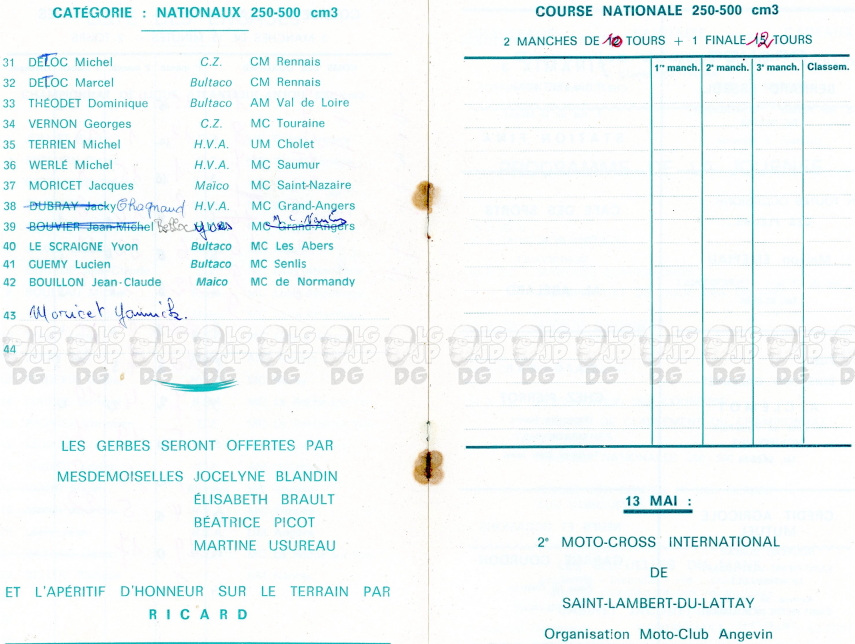 CATÉGORIE : NATIONAUX 250-500 cm3
31 DELOC Michel C.Z. CM Rennais
32 DELOC Marcel Bultaco CM Rennais
33 THÉODET Dominique Bultaco AM Val de Loire
34 VERNON Georges C.Z. MC Touraine
35 TERRIEN Michel H.V.A. UM Cholet
36 WERLÉ Michel H.V.A. MC Saumur
37 MORICET Jacques Maïco MC Saint-Nazaire
38 DUBRAY Jacky Chagnaud H.V.A. MC Grand-Angers
39 BOUVIER Jean-Michel MC Grand-Angers
40 LE SCRAIGNE Yvon Bultaco MC Les Abers
41 GUEMY Lucien Bultaco MC Senlis
42 BOUILLON Jean-Claude Maico MC de Normandy
43 Moricet Yannick.
44
LES GERBES SERONT OFFERTES PAR
MESDEMOISELLES JOCELYNE BLANDIN
ÉLISABETH BRAULT
BÉATRICE PICOT
MARTINE USUREAU
ET L'APÉRITIF D'HONNEUR SUR LE TERRAIN PAR
RICARD
COURSE NATIONALE 250-500 cm3
2 MANCHES DE 10 TOURS + 1 FINALE 12 TOURS
1re manch. 2e manch. 3e manch. Classem.
13 MAI :
2e MOTO-CROSS INTERNATIONAL
DE
SAINT-LAMBERT-DU-LATTAY
Organisation Moto-Club Angevin
LG
JP
DG